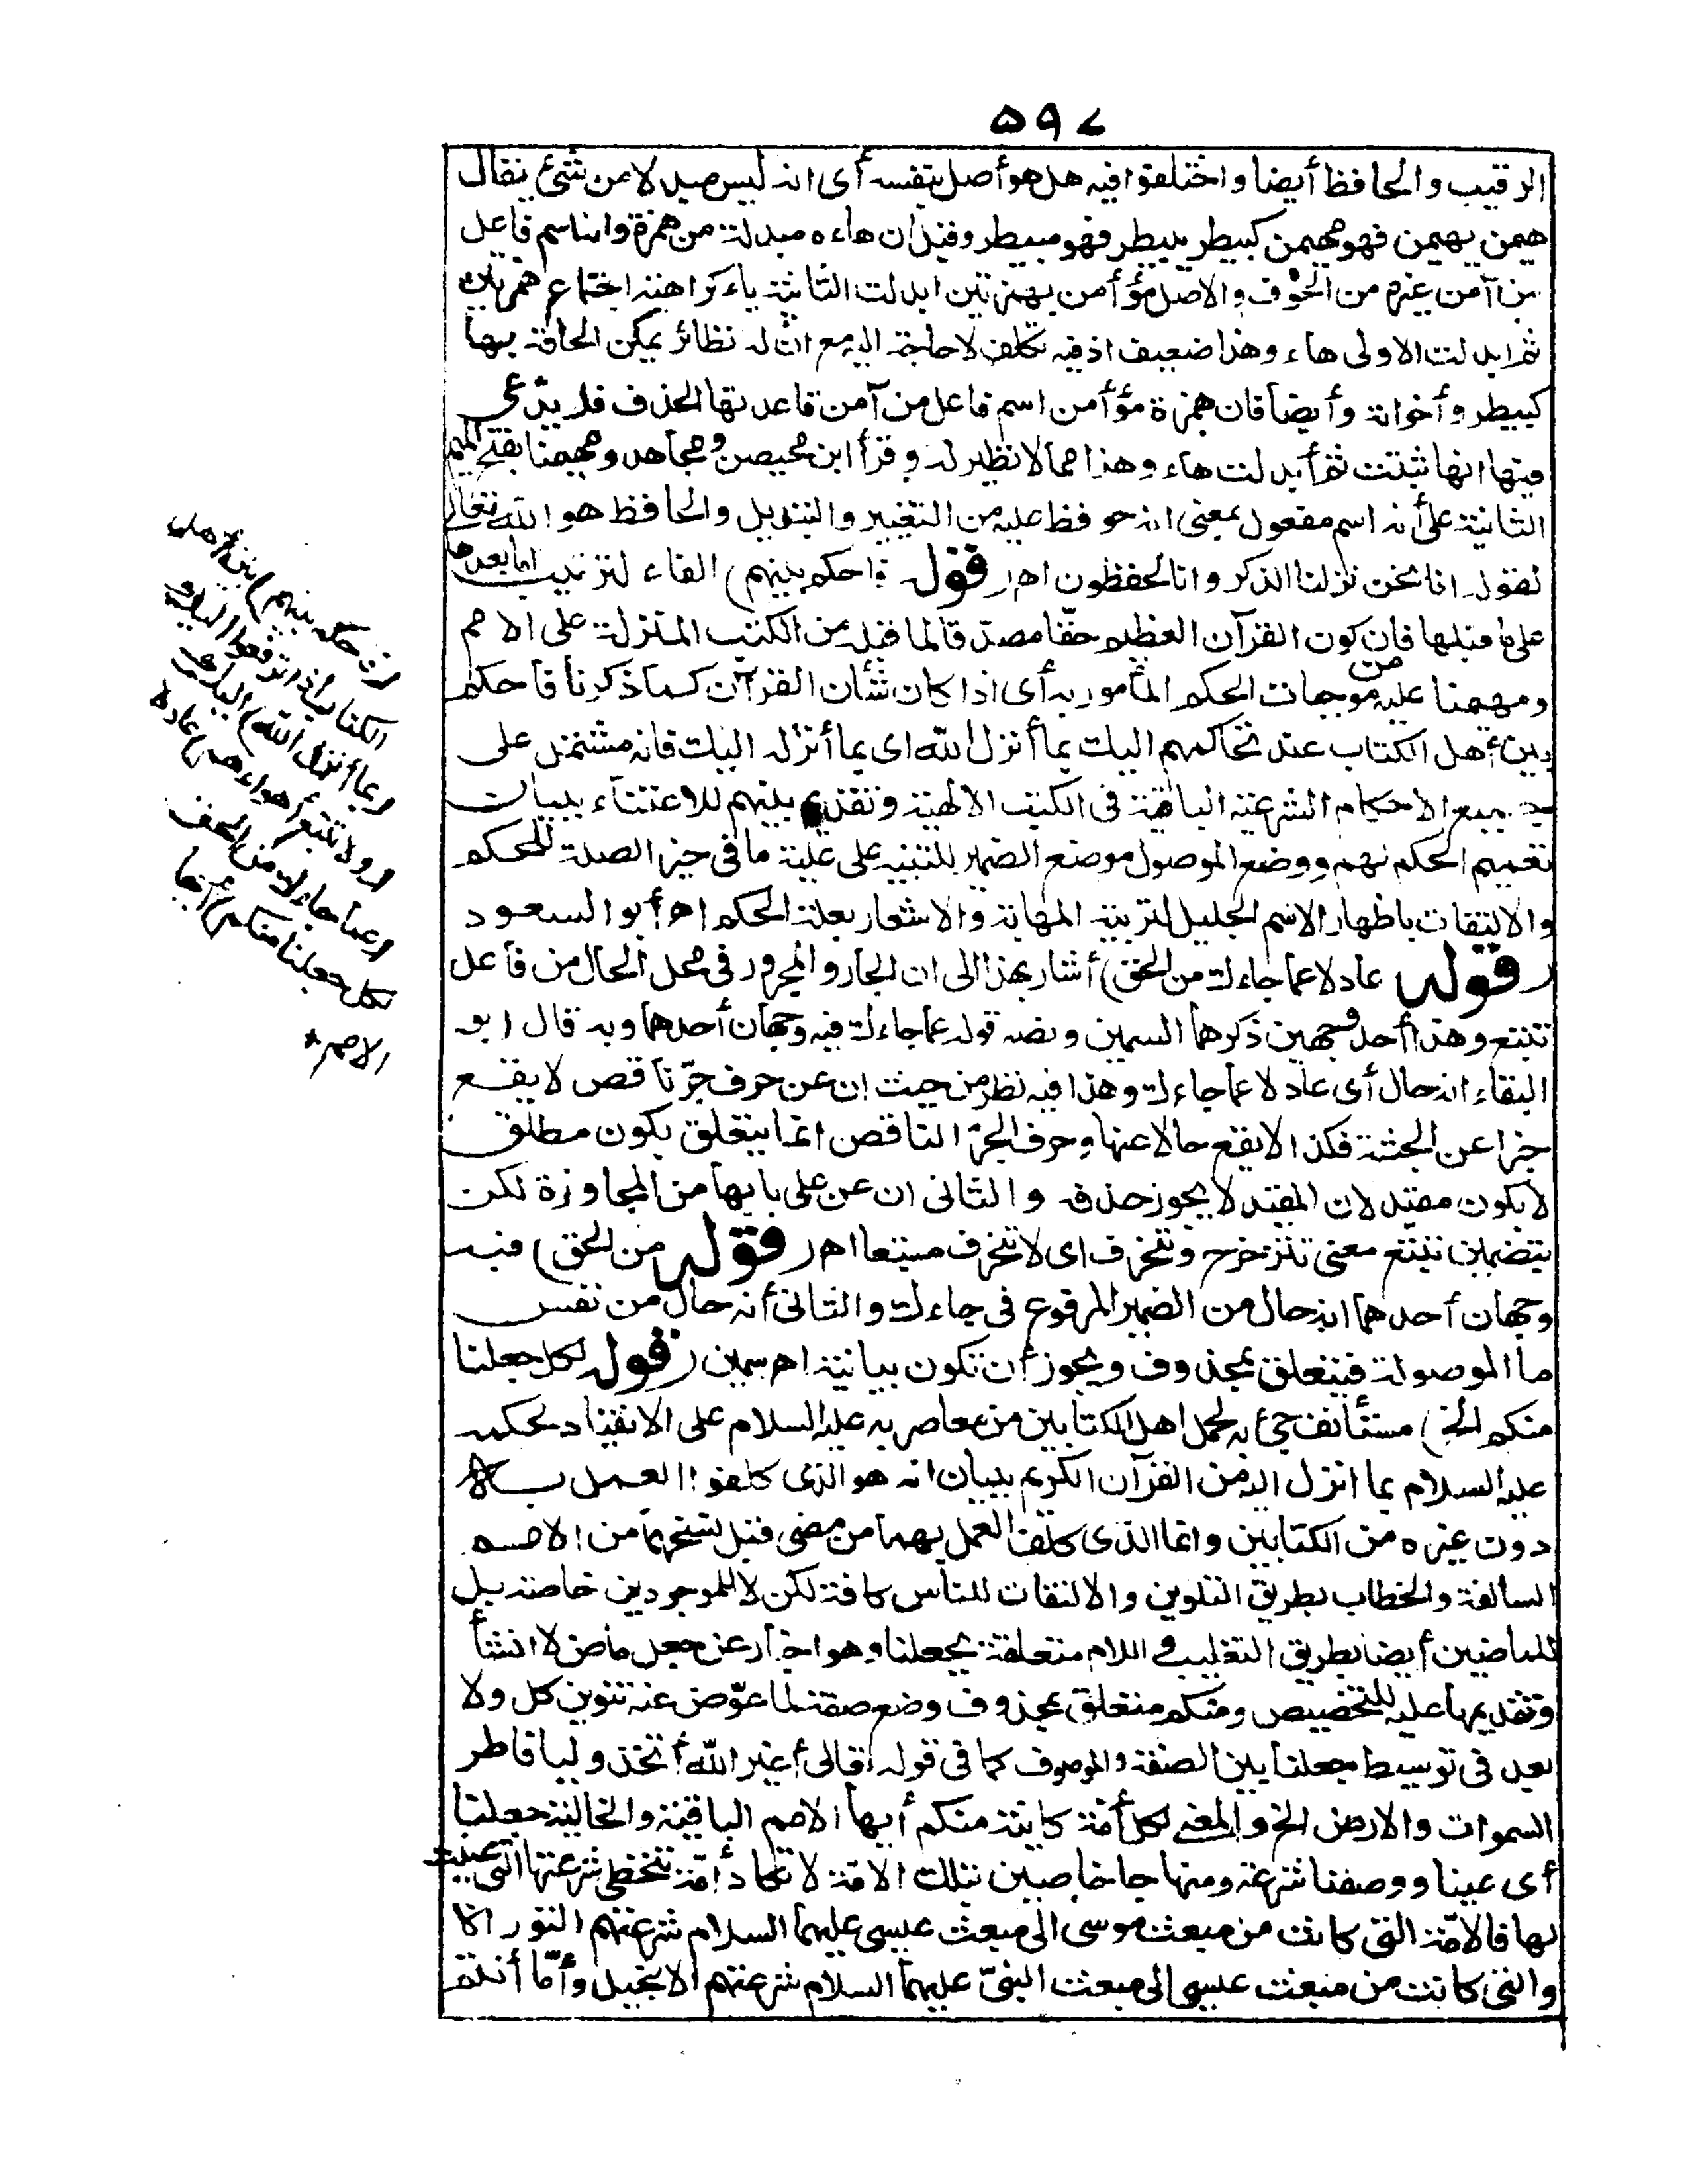 ٥٩٧
الرقيب والحافظ أيضا واختلفوا فيه هل هو أصل بنفسه أى انه ليس مبدلا من شئ يقال
هيمن يهيمن فهو مهيمن كبيطر يبيطر فهو مبيطر وقيل ان هاءه مبدلة من همزة وانه اسم فاعل
من آمن غيره من الخوف والاصل مؤأمن بهمزتين ابدلت الثانية ياء كراهية اجتماع همزتين
ثم ابدلت الاولى هاء وهذا ضعيف اذ فيه تكلف لا حاجة اليه مع ان له نظائر يمكن الحاقه بها
كبيطر وأخواته وأيضا فان همزة مؤأمن اسم فاعل من آمن قاعدتها الحذف فلا يدّعى
فيها انها ثبتت ثم أبدلت هاء وهذا مما لا نظير له وقرأ ابن محيصن ومجاهد ومهيمنا بفتح الميم
الثانية على أنه اسم مفعول بمعنى انه حوفظ عليه من التغيير والتبديل والحافظ هو الله تعالى
لقوله انا نحن نزلنا الذكر وانا له لحفظون اهـ (قوله فاحكم بينهم) الفاء لترتيب ما بعدها
على ما قبلها فان كون القرآن العظيم حقا مصدقا لما قبله من الكتب المنزلة على الامم
ومهيمنا عليه من موجبات الحكم المأمور به أى اذا كان شأن القرآن كما ذكرنا فاحكم
بين أهل الكتاب عند تحاكمهم اليك بما أنزل الله اى بما أنزله اليك فانه مشتمل على
جميع الاحكام الشرعية الباقية فى الكتب الالهية وتقديم بينهم للاعتناء ببيان
تعميم الحكم لهم ووضع الموصول موضع الضمير للتنبيه على علية ما فى حيز الصلة للحكم
والالتفات باظهار الاسم الجليل لتربية المهابة والاشعار بعلة الحكم اهـ أبو السعود
(قوله عادلا عما جاءك من الحق) أشار بهذا الى ان الجار والمجرور فى محل الحال من فاعل
تتبع وهذا أحد وجهين ذكرهما السمين ونصه قوله عما جاءك فيه وجهان أحدهما وبه قال ابو
البقاء انه حال أى عادلا عما جاءك وهذا فيه نظر من حيث ان عن حرف جرّ ناقص لا يقع
خبرا عن الجثة فكذا لا يقع حالا عنها وحرف الجرّ الناقص انما يتعلق بكون مطلق
لا بكون مقيد لان المقيد لا يجوز حذفه والثانى ان عن على بابها من المجاوزة لكن
بتضمين تتبع معنى تتزحزح وتنحرف اى لا تنحرف متبعا اهـ (قوله من الحق) فيه
وجهان أحدهما انه حال من الضمير المرفوع فى جاءك والثانى أنه حال من نفس
ما الموصولة فيتعلق بمحذوف ويجوز أن تكون بيانية اهـ سمين (قوله لكل جعلنا
منكم الخ) مستأنف جئ به لحمل اهل الكتابين من معاصريه عليه السلام على الانقياد لحكمه
عليه السلام بما انزل اليه من القرآن الكريم ببيان انه هو الذى كلفوا العمل به
دون غيره من الكتابين وانما الذى كلف العمل بهما من مضى قبل نسخهما من الامم
السالفة والخطاب بطريق التلوين والالتفات للناس كافة لكن لا للموجودين خاصة بل
للماضيين أيضا بطريق التغليب واللام متعلقة بجعلنا وهو اخبار عن جعل ماض لا انشأ
وتقديمها عليه للتخصيص ومنكم متعلق بمحذوف وضع صفة لما عوّض عنه تنوين كل ولا
بعد فى توسيط جعلنا بين الصفة والموصوف كما فى قوله تعالى أغير الله أتخذ وليا فاطر
السموات والارض الخ والمعنى لكل أمّة كائنة منكم أيها الامم الباقية والخالية جعلنا
أى عينا ووضعنا شرعة ومنهاجا خاصين بتلك الامّة لا تكاد أمّة تتخطى شرعتها التى عينت
لها فالامّة التى كانت من مبعث موسى الى مبعث عيسى عليهما السلام شرعتهم التوراة
والتى كانت من مبعث عيسى الى مبعث النبىّ عليهما السلام شرعتهم الانجيل وأمّا أنتم
(فاحكم بينهم) بين أهل
الكتاب اذا ترفعوا اليك
(بما أنزل الله) اليك
(ولا تتبع أهواءهم) عادلا
(عما جاءك من الحق
لكل جعلنا منكم) أيها
الامم *